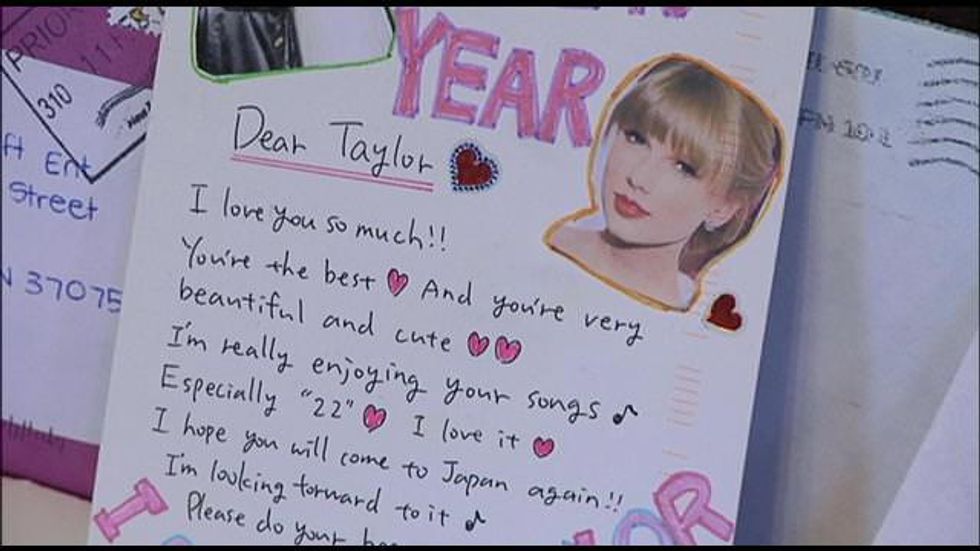 YEAR
Dear Taylor
I love you so much!!
You're the best And you're very
beautiful and cute
I'm really enjoying your songs ♪
Especially "22" I love it
I hope you will come to Japan again!!
I'm looking forward to it ♪
Please do your
310
ft Ent
Street
N 37075